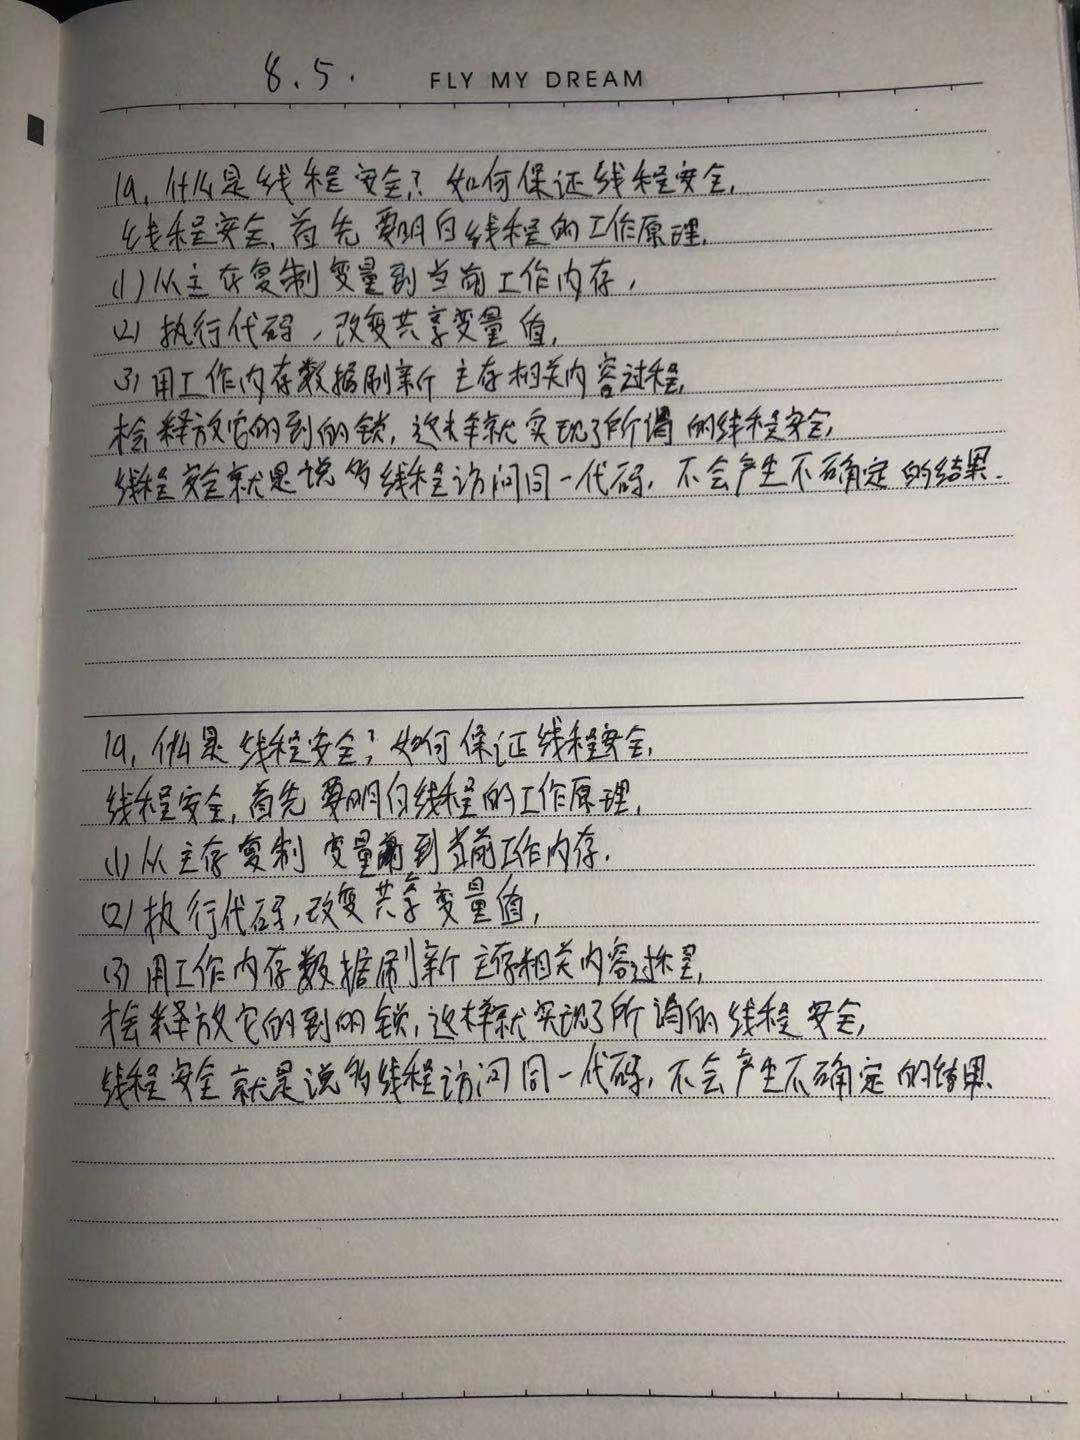 8.5. FLY MY DREAM
19、什么是线程安全？如何保证线程安全，
线程安全，首先要明白线程的工作原理，
(1)从主存复制变量到当前工作内存，
(2) 执行代码，改变共享变量值，
(3) 用工作内存数据刷新主存相关内容过程，
会释放它的到的锁，这样就实现了所谓的线程安全，
线程安全就是说多线程访问同一代码，不会产生不确定的结果.
19、什么是线程安全？如何保证线程安全，
线程安全，首先要明白线程的工作原理，
(1)从主存复制变量到当前工作内存.
(2)执行代码，改变共享变量值，
(3)用工作内存数据刷新主存相关内容过程，
会释放它的到的锁，这样就实现了所谓的线程安全，
线程安全就是说多线程访问同一代码，不会产生不确定的结果.